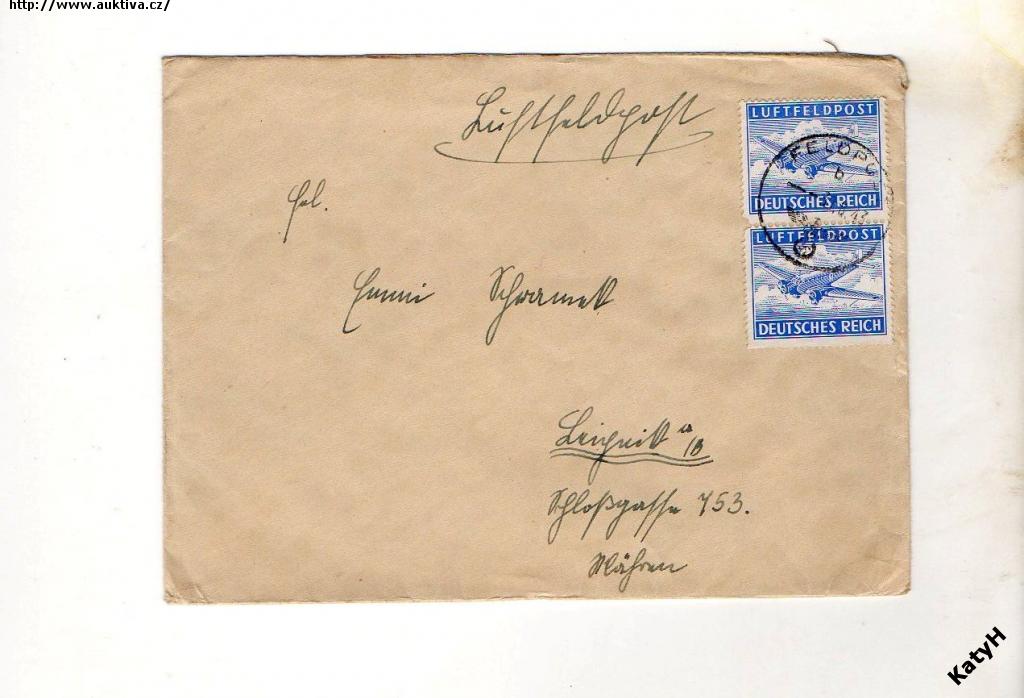 http://www.auktiva.cz/
Luftfeldpost
LUFTFELDPOST
DEUTSCHES REICH
FELDPO
b
43
LUFTFELDPOST
DEUTSCHES REICH
Frl.
Emmi Schramek
Leipnik a/B
Schloßgasse 753.
Mähren
KatyH